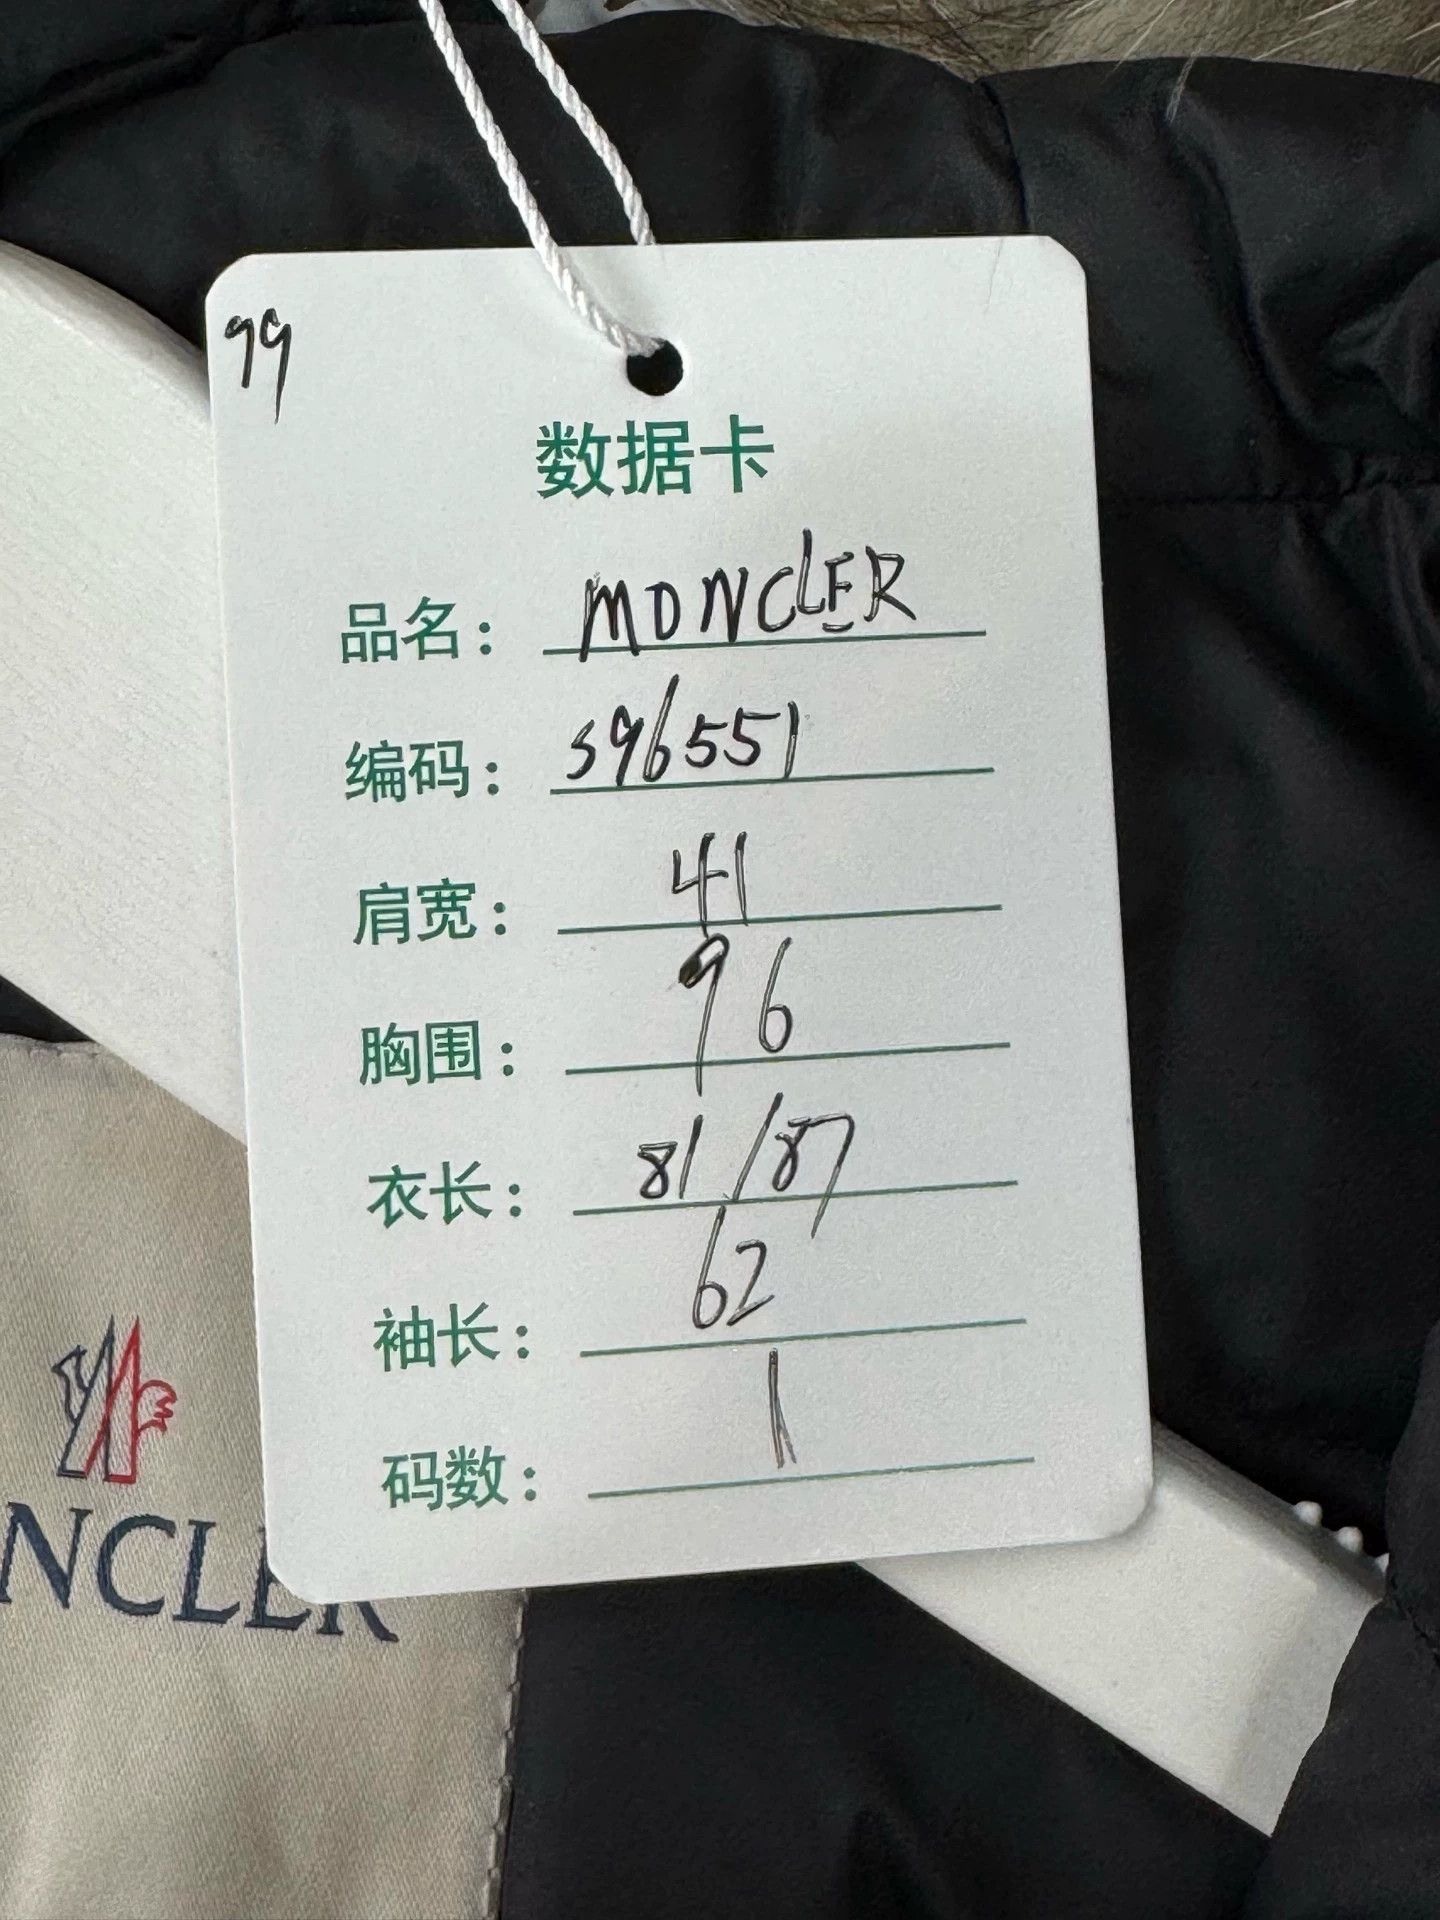 99
数据卡
品名： MONCLER
编码： S96551
肩宽： 41
胸围： 96
衣长： 81/87
袖长： 62
码数： 1
NCLER